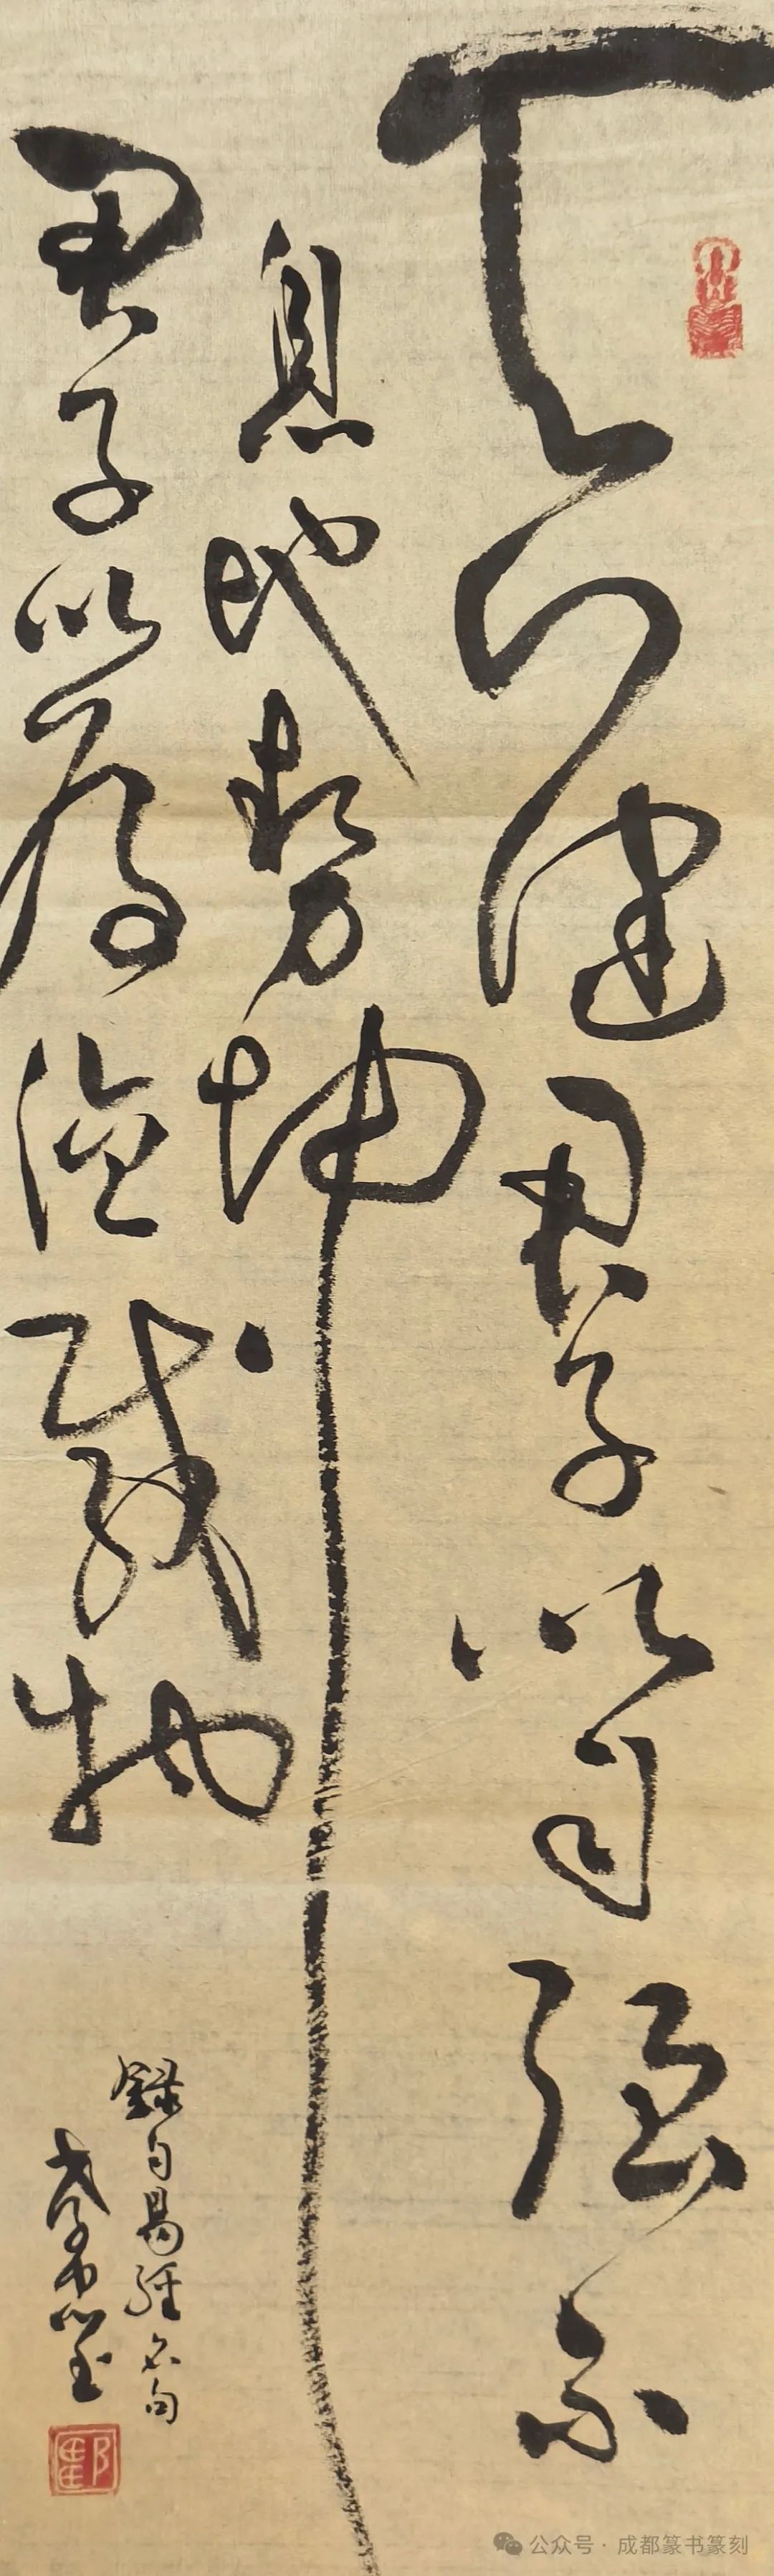 天行健君子以自强不
息地勢坤
君子以厚德載物
錄自易經名句
公众号·成都篆书篆刻